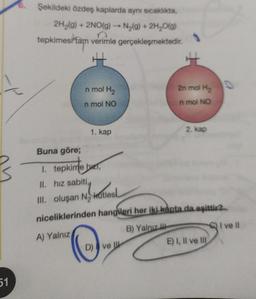 6. Şekildeki özdeş kaplarda aynı sıcaklıkta,
2H₂(g) + 2NO(g) → N₂(g) + 2H₂O(g)
tepkimesi tam verimle gerçekleşmektedir.
n mol H₂
n mol NO
1. kap
2n mol H₂
n mol NO
2. kap
Buna göre;
I. tepkime hızı,
II. hız sabiti,
III. oluşan N₂ kütlesi
niceliklerinden hangileri her iki kapta da eşittir?
A) Yalnız
B) Yalnız III
C) I ve II
D) ve III
E) I, II ve III
51